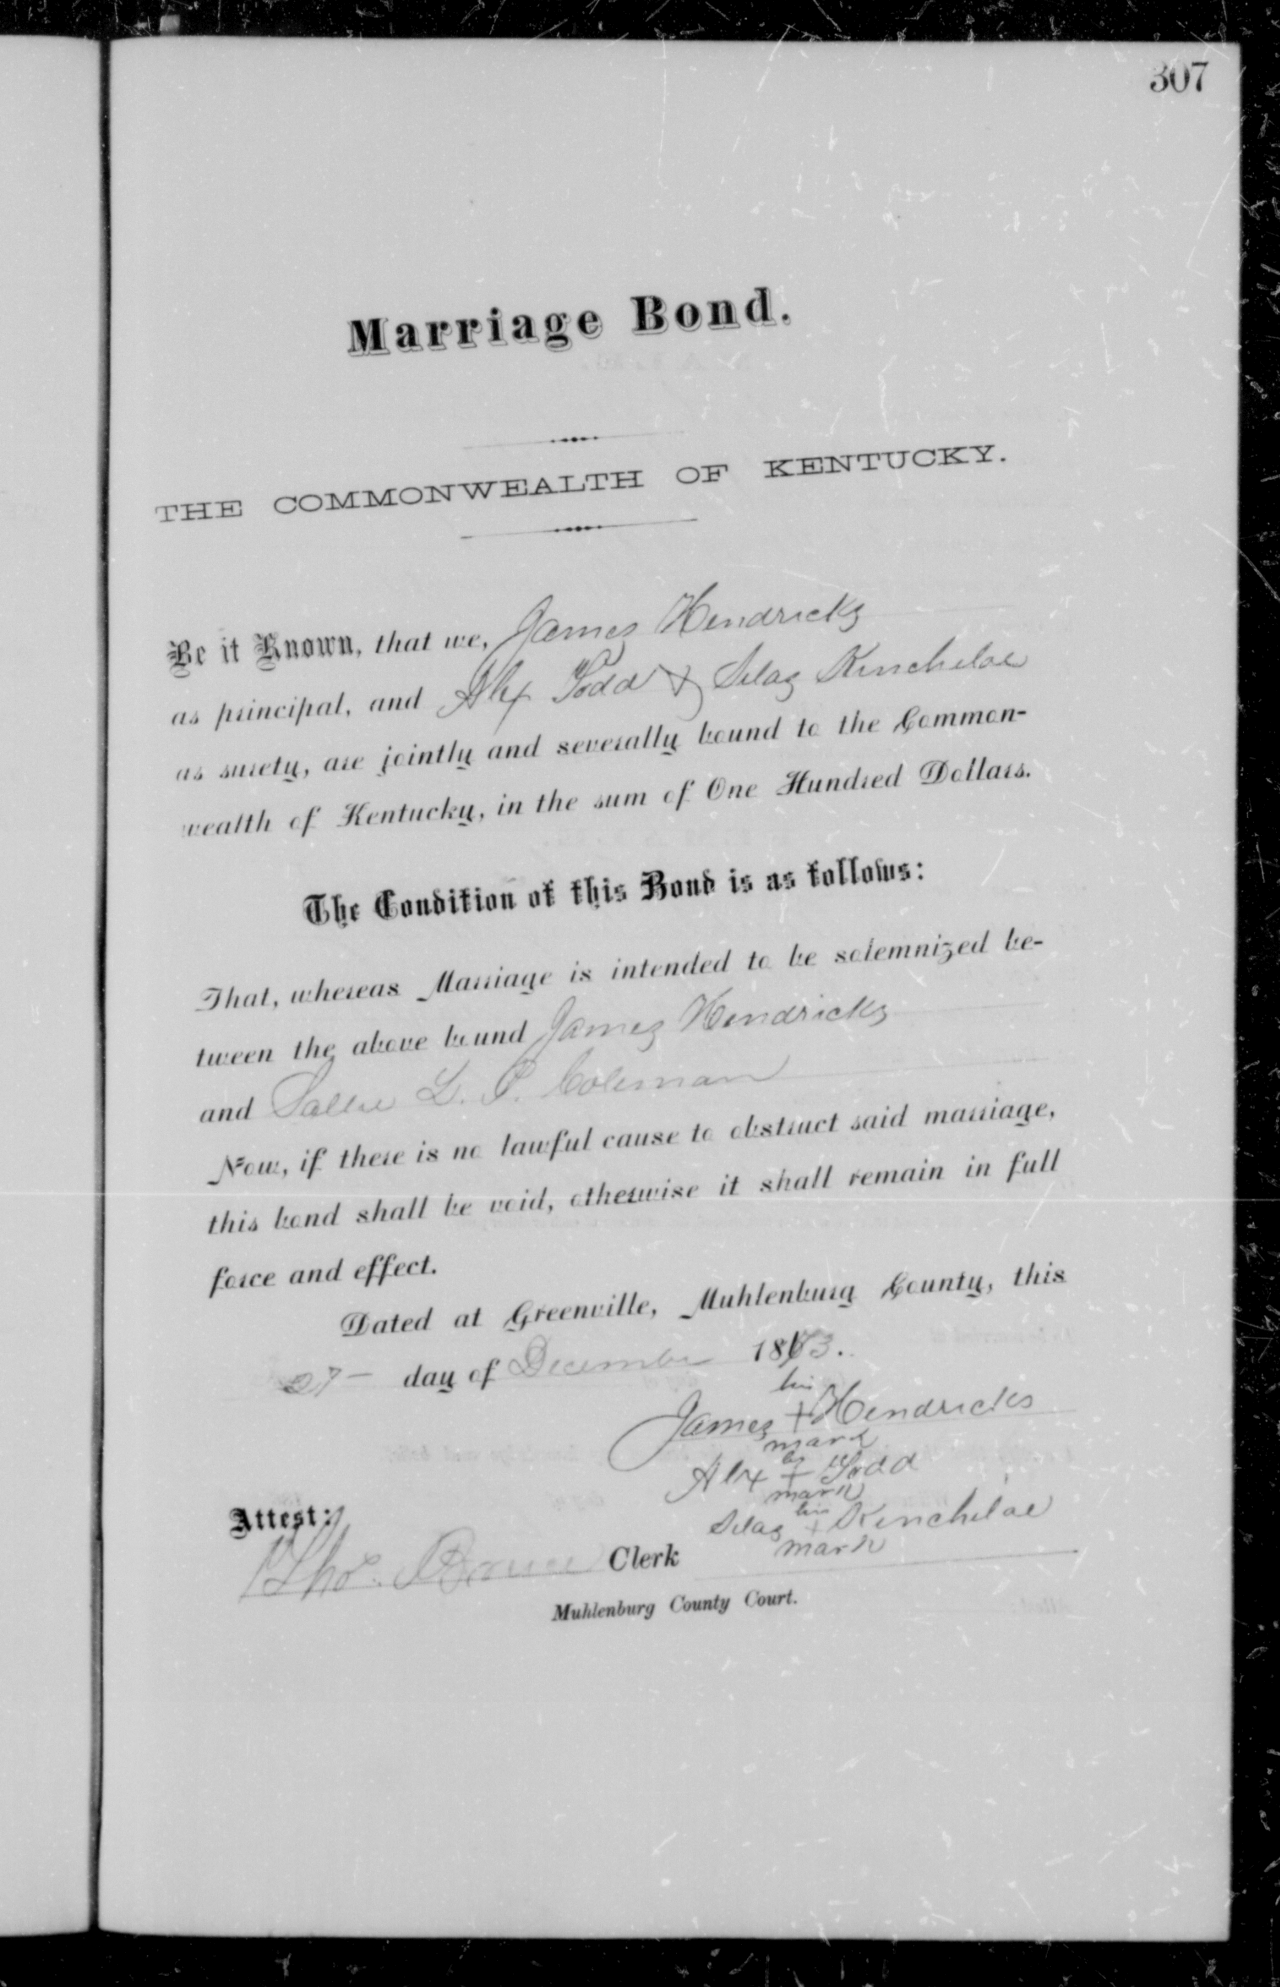 307
Marriage Bond.
THE COMMONWEALTH OF KENTUCKY.
Be it Known, that we, James Hendricks
as principal, and Alex Todd & Silas Kincheloe
as surety, are jointly and severally bound to the Common-
wealth of Kentucky, in the sum of One Hundred Dollars.
The Condition of this Bond is as follows:
That, whereas Marriage is intended to be solemnized be-
tween the above bound James Hendricks
and Sallie L. P. Coleman
Now, if there is no lawful cause to obstruct said marriage,
this bond shall be void, otherwise it shall remain in full
force and effect.
Dated at Greenville, Muhlenburg County, this
27 — day of December 1873.
his
James + Hendricks
mark
his
Alex + Todd
mark
his
Attest: Silas + Kincheloe
mark
Thos. Bruce Clerk
Muhlenburg County Court.